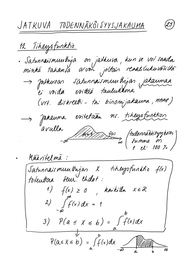 JATKUVA TODENNÄKÖISYYSJAKAUMA
12. Tiheysfunktio
- Satunnaismuuttuja on jatkuva, kun se voi saada
minkä tahansa arvon joltain reaalilukuväliltä
→ Jatkuvan satunnaismuuttujan jakaumaa
ei voida esittää taulukkona
(vrt. diskreetti- tai binomijakauma,
→ Jakauma esitetään ns. tiheysfunktion
avulla
(todennäköisyyden
summa on
1 eli 100 %)
Määritelmä:
Satunnaismuuttujan X tiheysfunktio f(x)
toteuttaa seur. ehdot:
1) f(x) ≥ 0, kaikilla x∈R
2) ∫f(x)dx = 1
3) P(a ≤ X ≤ b) = ∫f(x)dx
P(a ≤ X ≤ b) = ∫f(x)dx
a b